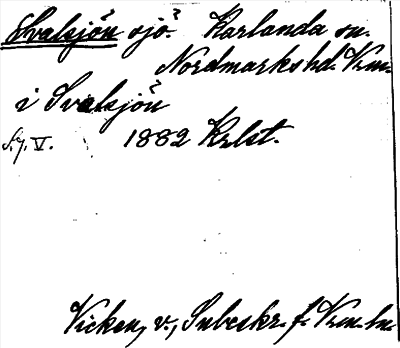 Svalsjön sjö. Karlanda sn.
Nordmarks hd. Vrm.
i Svalsjön
S.g. V. 1882 Krlst.
Vicken, v., Subeskr. f. Vrm. ln